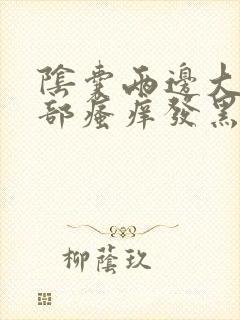 陰囊兩邊大
部瘙癢發黑
柳蔭玖